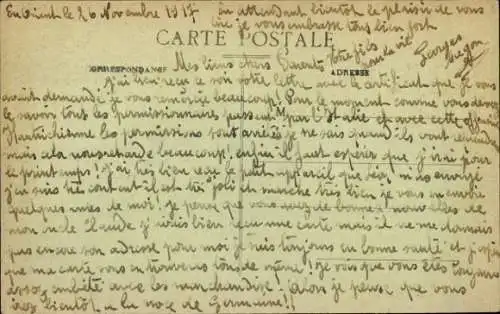 En Orient le 26 Novembre 1917 en attendant bientôt le plaisir de vous
lire je vous embrasse tous bien fort
CARTE POSTALE
Votre fils pour la vie
Georges
CORRESPONDANCE
ADRESSE
Mes biens chers Parents
J'ai bien reçu ce soir votre lettre avec le certificat que je vous
avait demandé je vous remercie beaucoup! Pour le moment comme vous devez
le savoir tout les permissionnaires passent par l'Italie et avec cette
les permissions sont arrêtés je ne sais quand ils vont reprendre
mais cela nous retarde beaucoup! enfin il faut espérer que j'irai pour
le printemps! J'ai très bien reçu le petit appareil que vous m'avez envoyé
j'en suis très content il est très joli et marche très bien je vous en envoie
quelques unes de moi! Je pense que vous avez de bonnes nouvelles de
mon oncle Claude j'avais bien reçu une carte mais il ne me donnais
pas encore son adresse pour moi je suis toujours en bonne santé et j'espère
que ma carte vous en trouvera tous de même! je vois que vous êtes toujours
assez embêté avec les marchandises! alors je pense que vous
irez bientôt a la noce de Germaine!!